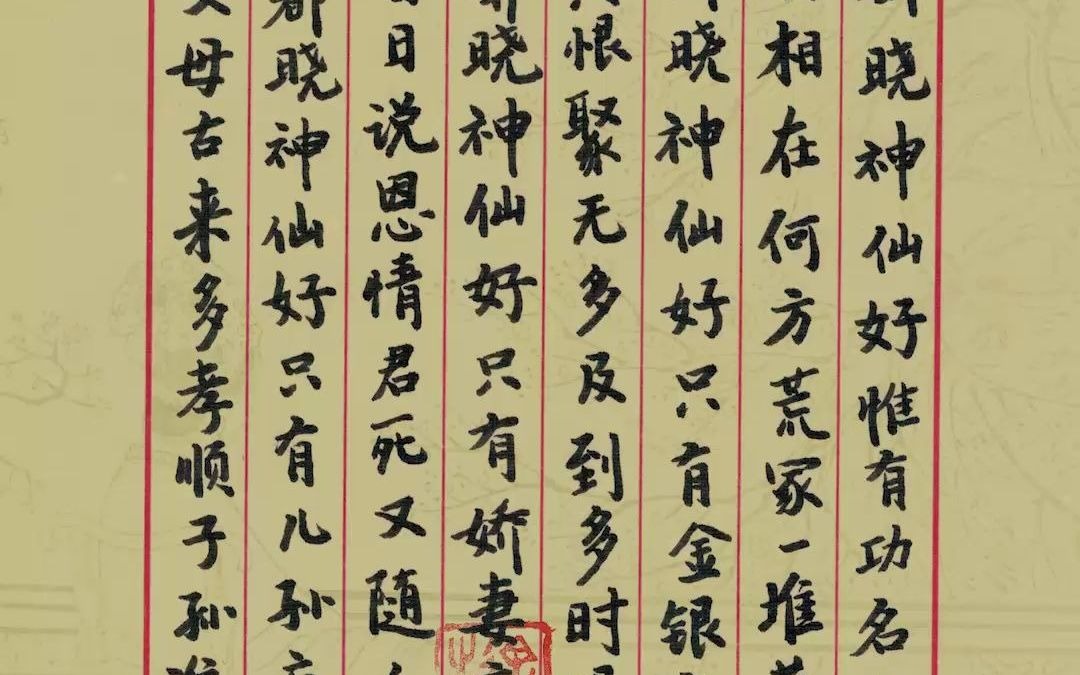 晓神仙好惟有功名
相在何方荒冢一堆
晓神仙好只有金银
恨聚无多及到多时
晓神仙好只有娇妻
日说恩情君死又随
都晓神仙好只有儿孙
母古来多孝顺子孙